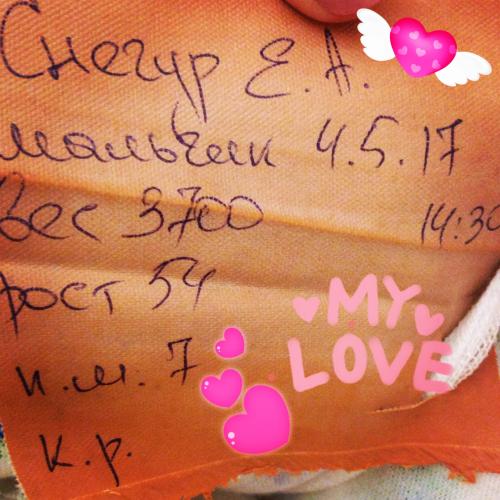 Снегур Е. А.
мальчик 4.5.17
вес 3700 14:30
рост 54
и.м. 7
к.р.
MY
LOVE